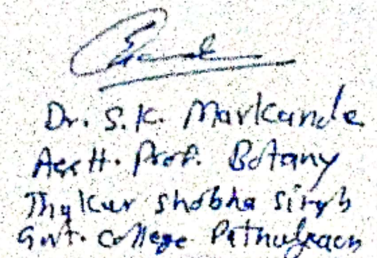 Dr. S.K. Markande
Asstt. Prof. Botany
Thakur Shobha Singh
Govt. College Pathalgaon